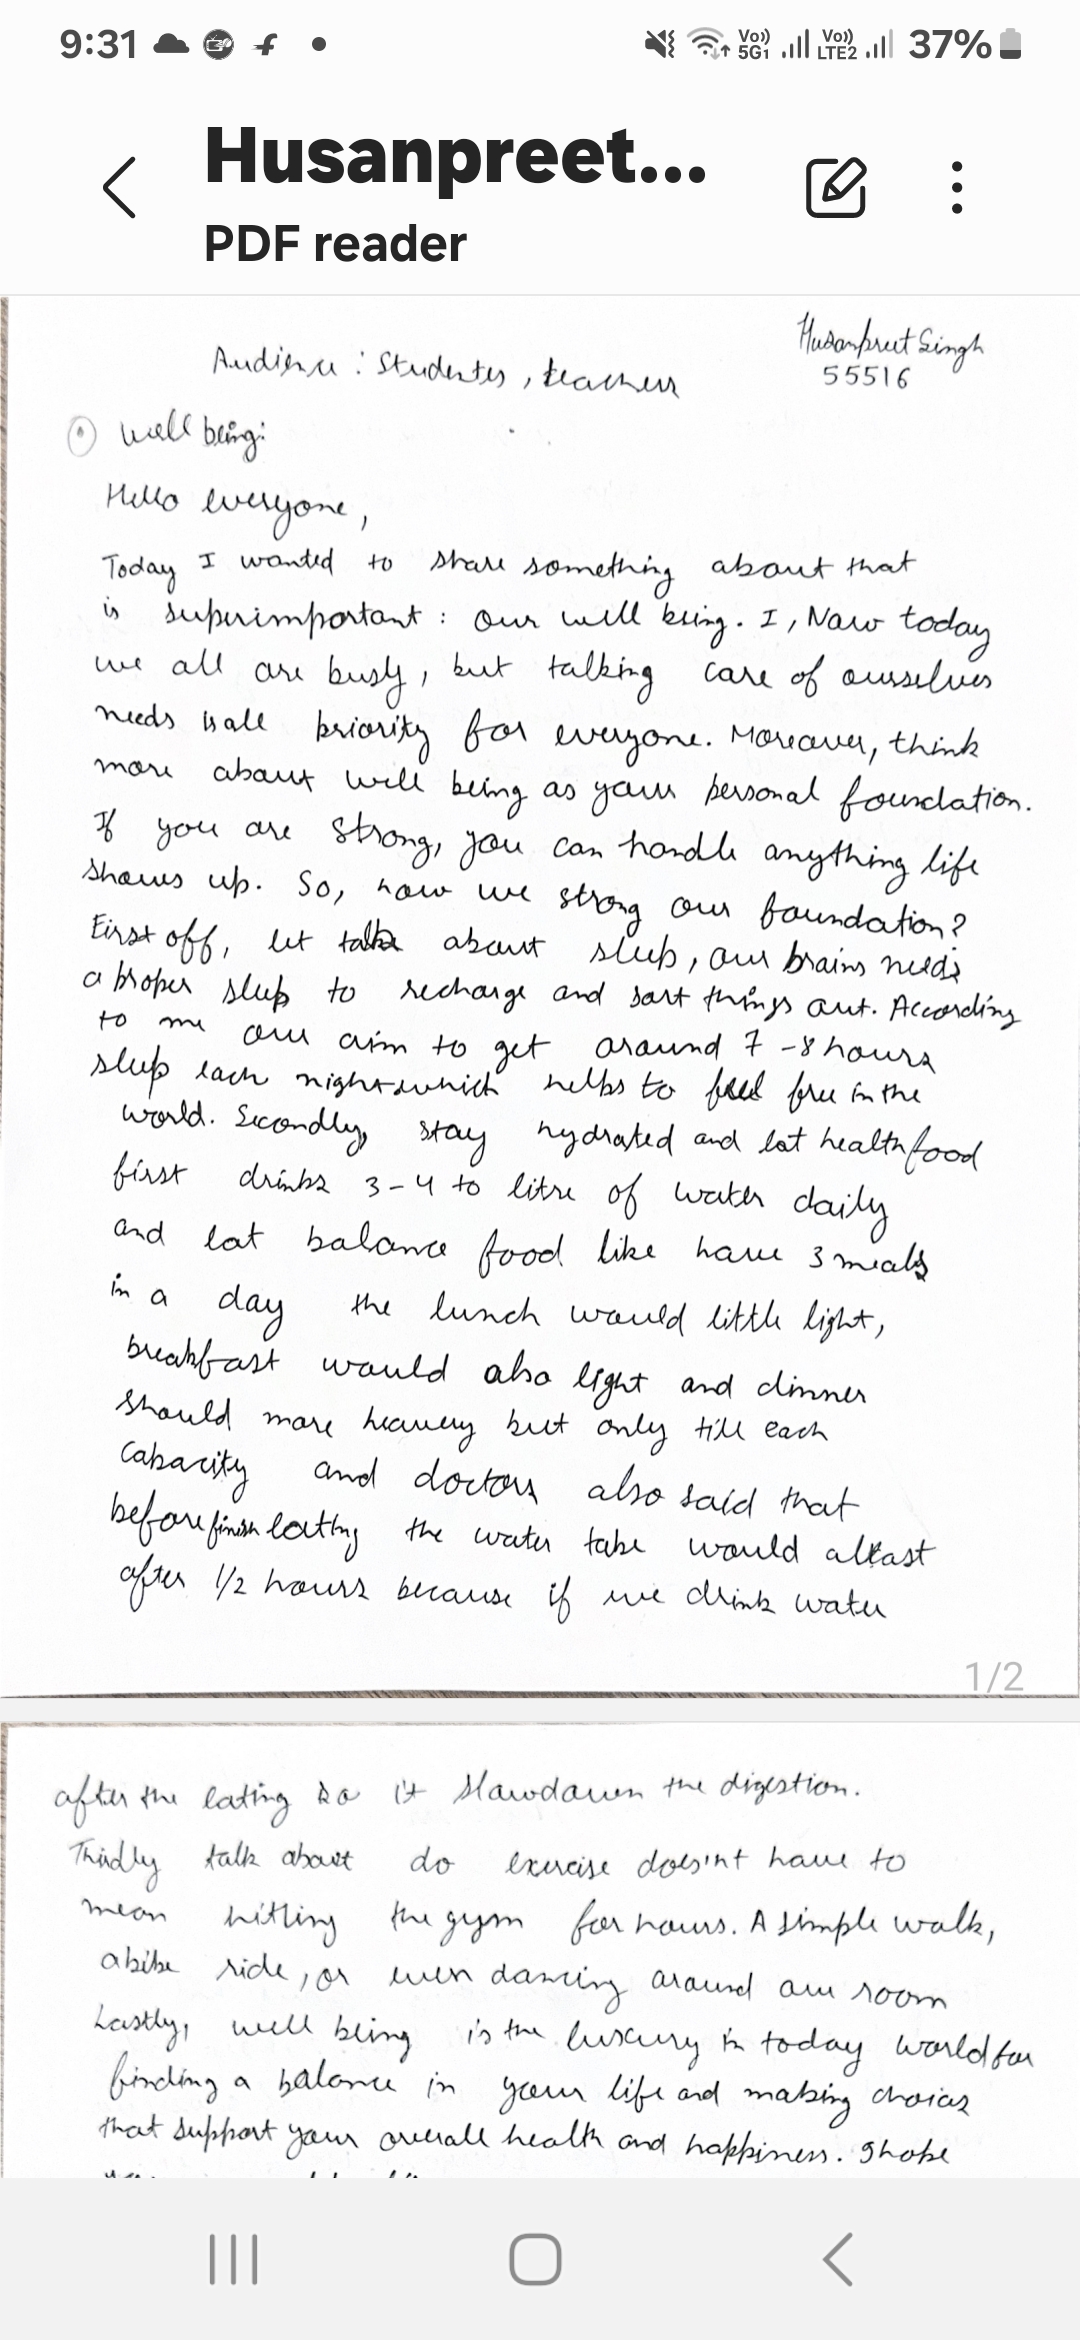 9:31
Vo)) 5G1 Vo)) LTE2 37%
Husanpreet...
PDF reader
Husanpreet Singh
55516
Audience : Studentes , teachers
well being:
Hello everyone,
Today I wanted to share something about that
is superimportant : our well being. I, Now today
we all are busy, but talking care of ourselves
needs priority for everyone. Moreover, think
more about well being as your personal foundation.
If you are strong, you can handle anything life
shows up. So, how we strong our foundation?
First off, let talk about sleep, our brains needs
a proper sleep to recharge and sort things out. According
to me our aim to get around 7-8 hours
sleep each night which helps to feel free in the
world. Secondly, stay hydrated and eat health food
first drinks 3-4 to litre of water daily
and eat balance food like have 3 meals
in a day the lunch would little light,
breakfast would also light and dinner
should more heavery but only till each
capacity and doctors also said that
before finish eating the water take would atleast
after 1/2 hours because if we drink water
1/2
after the eating so it slowdown the digestion.
Thirdly talk about do exercise doesn't have to
mean hitting the gym for hours. A simple walk,
a bike ride, or even dancing around our room
Lastly, well being is the luxury in today world for
finding a balance in your life and making choices
that support your overall health and happiness. I hope